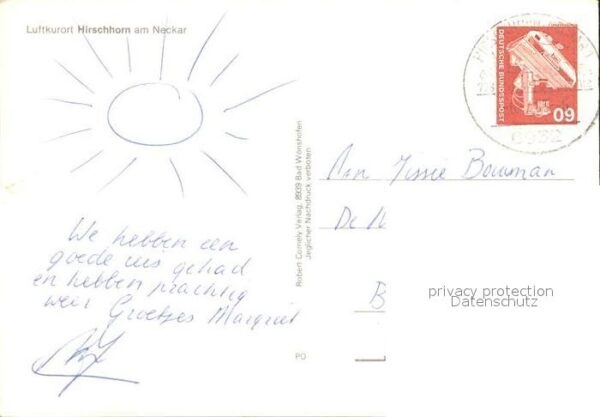 Luftkurort Hirschhorn am Neckar
We hebben een
goede reis gehad
en hebben prachtig
weer Groetjes Margriet
Robert Cornely Verlag, 8939 Bad Wörishofen
Jeglicher Nachdruck verboten
PO
DEUTSCHE BUNDESPOST
60
6932
Aan Jissie Bouman
De
B
privacy protection
Datenschutz